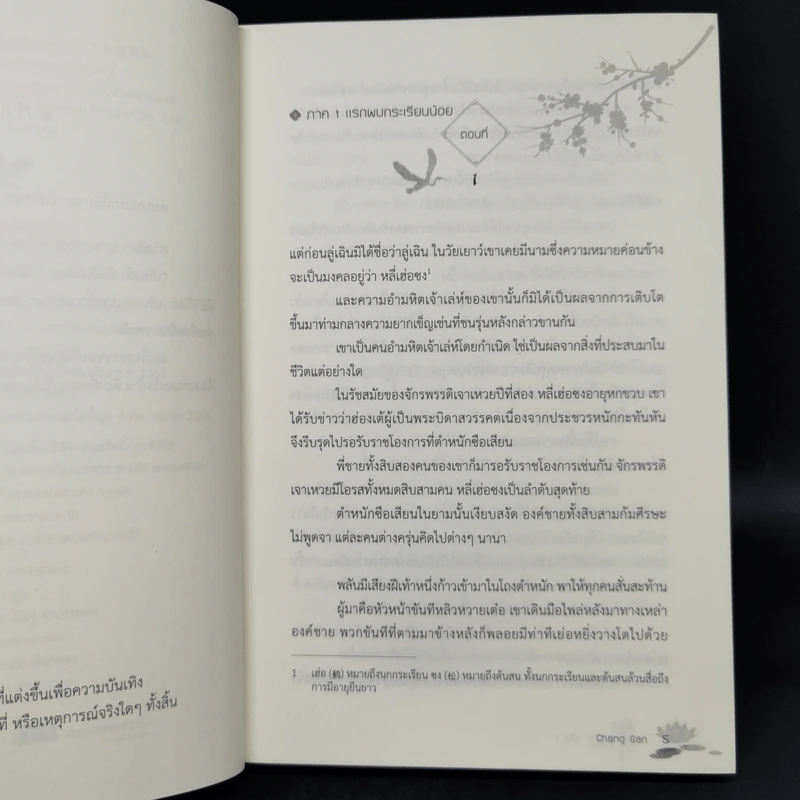 ที่แต่งขึ้นเพื่อความบันเทิง
ที่ หรือเหตุการณ์จริงใดๆ ทั้งสิ้น
ภาค 1 แรกพบกระเรียนน้อย
ตอนที่
1
แต่ก่อนลู่เฉินมิได้ชื่อว่าลู่เฉิน ในวัยเยาว์เขาเคยมีนามซึ่งความหมายค่อนข้าง
จะเป็นมงคลอยู่ว่า หลี่เฮ่อซง1
และความอำมหิตเจ้าเล่ห์ของเขานั้นก็มิได้เป็นผลจากการเติบโต
ขึ้นมาท่ามกลางความยากเข็ญเช่นที่ชนรุ่นหลังกล่าวขานกัน
เขาเป็นคนอำมหิตเจ้าเล่ห์โดยกำเนิด ใช่เป็นผลจากสิ่งที่ประสบมาใน
ชีวิตแต่อย่างใด
ในรัชสมัยของจักรพรรดิเจาเหวยปีที่สอง หลี่เฮ่อซงอายุหกขวบ เขา
ได้รับข่าวว่าฮ่องเต้ผู้เป็นพระบิดาสวรรคตเนื่องจากประชวรหนักกะทันหัน
จึงรีบรุดไปรอรับราชโองการที่ตำหนักซือเสียน
พี่ชายทั้งสิบสองคนของเขาก็มารอรับราชโองการเช่นกัน จักรพรรดิ
เจาเหวยมีโอรสทั้งหมดสิบสามคน หลี่เฮ่อซงเป็นลำดับสุดท้าย
ตำหนักซือเสียนในยามนั้นเงียบสงัด องค์ชายทั้งสิบสามก้มศีรษะ
ไม่พูดจา แต่ละคนต่างครุ่นคิดไปต่างๆ นานา
พลันมีเสียงฝีเท้าหนึ่งก้าวเข้ามาในโถงตำหนัก พาให้ทุกคนสั่นสะท้าน
ผู้มาคือหัวหน้าขันทีหลิวหวายเต๋อ เขาเดินมือไพล่หลังมาทางเหล่า
องค์ชาย พวกขันทีที่ตามมาข้างหลังก็พลอยมีท่าทีเย่อหยิ่งวางโตไปด้วย
1 เฮ่อ (鶴) หมายถึงนกกระเรียน ซง (松) หมายถึงต้นสน ทั้งนกกระเรียนและต้นสนล้วนสื่อถึง
การมีอายุยืนยาว
Chang Gan 5